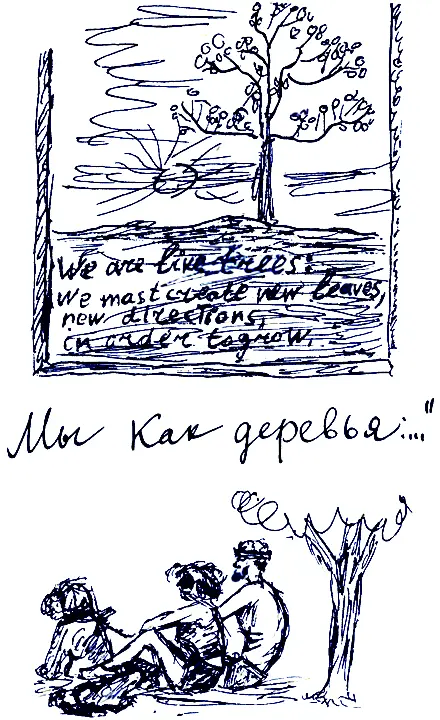 We are live trees:
we mast create new leaves,
new directions,
in order to grow.
Мы как деревья:..."